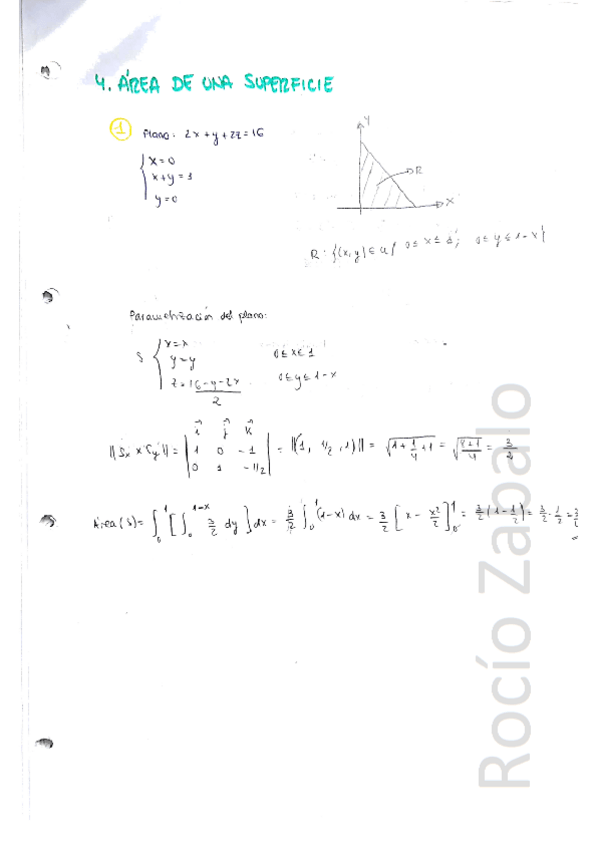 4. ÁREA DE UNA SUPERFICIE
1 Plano: 2x + y + 2z = 16
x = 0
x + y = 1
y = 0
Y
R
X
R: {(x,y) ∈ / 0 ≤ x ≤ 1; 0 ≤ y ≤ 1-x}
Parametrización del plano:
S { x = x
y = y 0 ≤ x ≤ 1
z = 16-y-2x / 2 0 ≤ y ≤ 1-x
||Sx x Sy|| = | i j k ; 1 0 -1 ; 0 1 -1/2 | = ||(1, 1/2, 1)|| = √(1 + 1/4 + 1) = = 3/2
Área (S) = ∫₀¹ [∫₀^(1-x) 3/2 dy] dx = 3/2 ∫₀¹ (1-x) dx = 3/2 [x - x²/2]₀¹ = 3/2 (1 - 1/2) = 3/2 · 1/2 =
Rocío Zabalo